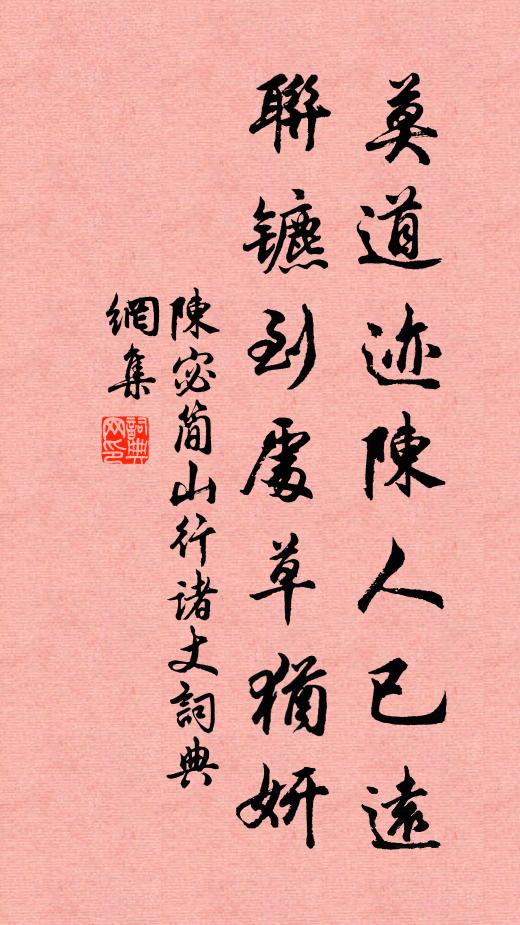 莫道迹陳人已遠
聯镳到處草猶妍
陳宓簡山行诸丈詞典
網集
詞典網印